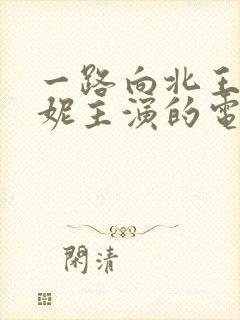 一路向北王
妮主演的電
閑清